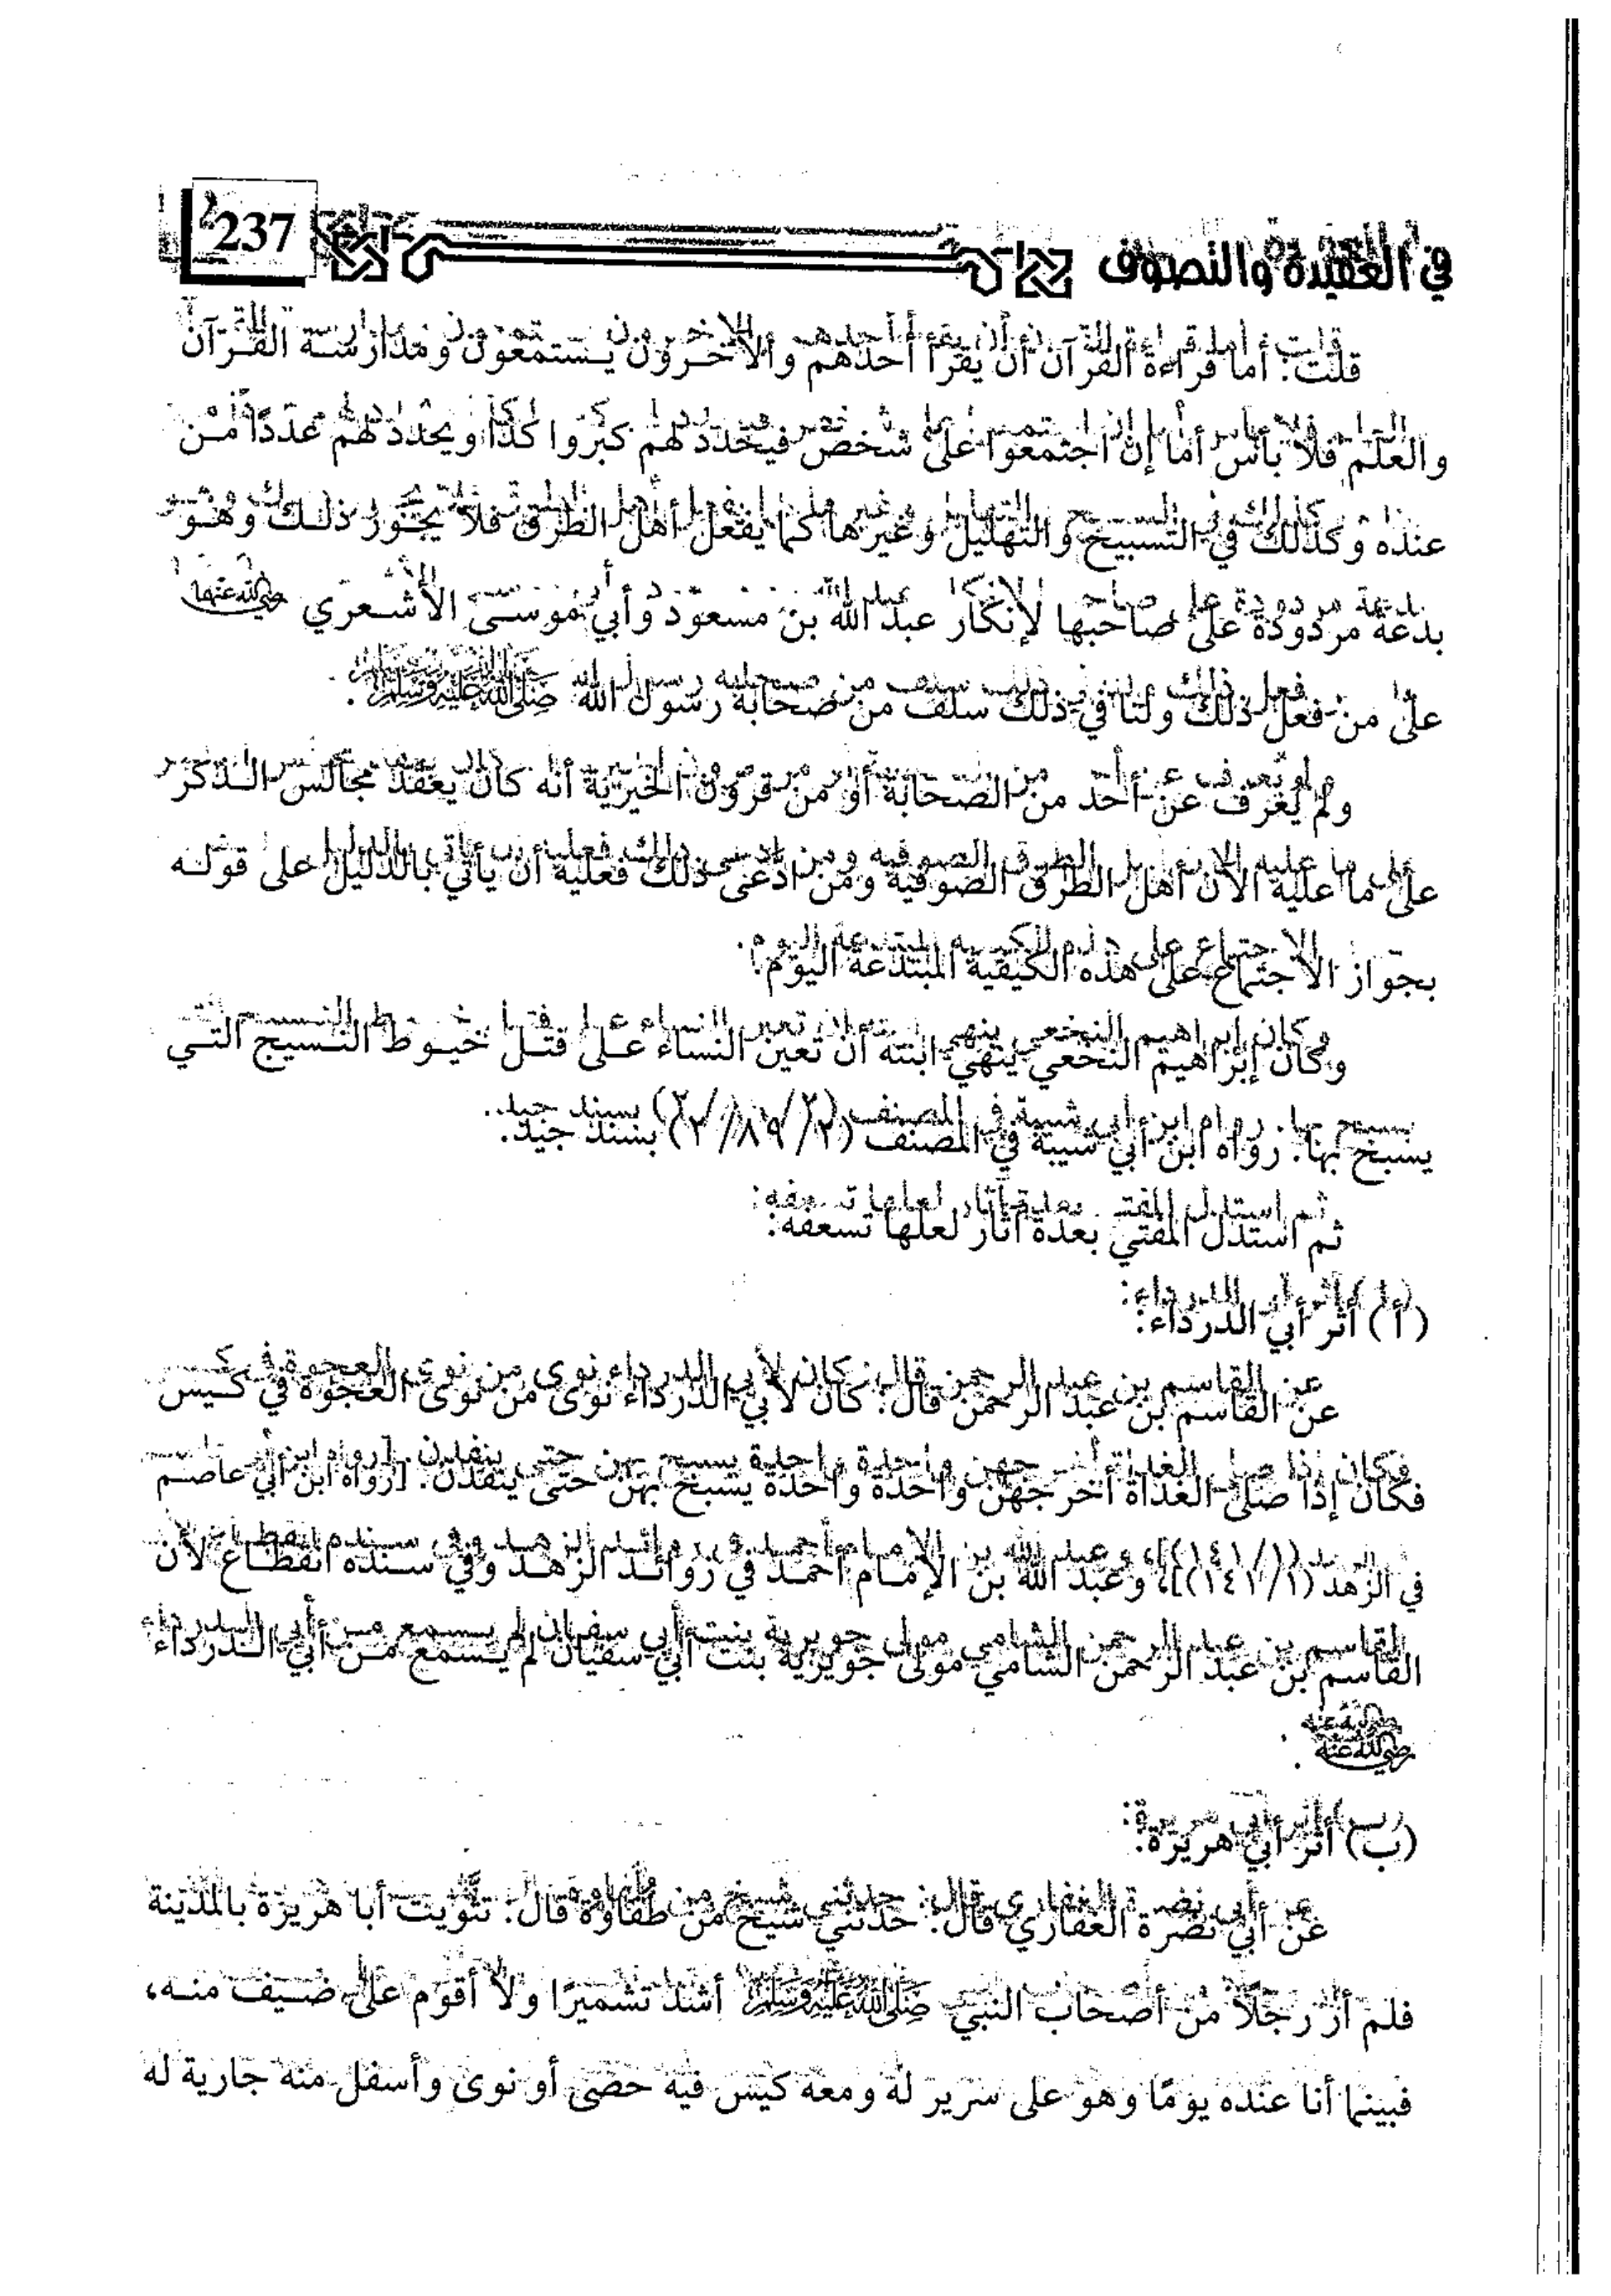 في العقيدة والتصوف
237
قلت: أما قراءة القرآن أن يقرأ أحدهم والآخرون يستمعون ومدارسة القرآن
والعلم فلا بأس أما إن اجتمعوا على شخص فيحدد لهم كبروا كذا ويحدد لهم عددًا من
عنده وكذلك في التسبيح والتهليل وغيرها كما يفعل أهل الطرق فلا يجوز ذلك وهو
بدعة مردودة على صاحبها لإنكار عبد الله بن مسعود وأبي موسى الأشعري رضي الله عنهما
على من فعل ذلك ولنا في ذلك سلف من صحابة رسول الله صلى الله عليه وسلم.
ولم يعرف عن أحد من الصحابة أو من قرون الخيرية أنه كان يعقد مجالس الذكر
على ما عليه الآن أهل الطرق الصوفية ومن ادعى ذلك فعليه أن يأتي بالدليل على قوله
بجواز الاجتماع على هذه الكيفية المبتدعة اليوم.
وكان إبراهيم النخعي ينهى ابنته أن تعين النساء على فتل خيوط النسيج التي
يسبح بها. رواه ابن أبي شيبة في المصنف (٢/٨٩/٢) بسند جيد.
ثم استدل المفتي بعدة آثار لعلها تسعفه:
(أ) أثر أبي الدرداء:
عن القاسم بن عبد الرحمن قال: كان لأبي الدرداء نوى من نوى العجوة في كيس
فكان إذا صلى الغداة أخرجهن واحدة واحدة يسبح بهن حتى ينفدن. [رواه ابن أبي عاصم
في الزهد (١/١٤١)]، وعبد الله بن الإمام أحمد في زوائد الزهد وفي سنده انقطاع لأن
القاسم بن عبد الرحمن الشامي مولى جويرية بنت أبي سفيان لم يسمع من أبي الدرداء
رضي الله عنه.
(ب) أثر أبي هريرة:
عن أبي نضرة الغفاري قال: حدثني شيخ من طفاوة قال: تثويت أبا هريرة بالمدينة
فلم أر رجلاً من أصحاب النبي صلى الله عليه وسلم أشد تشميرًا ولا أقوم على ضيف منه،
فبينما أنا عنده يومًا وهو على سرير له ومعه كيس فيه حصى أو نوى وأسفل منه جارية له